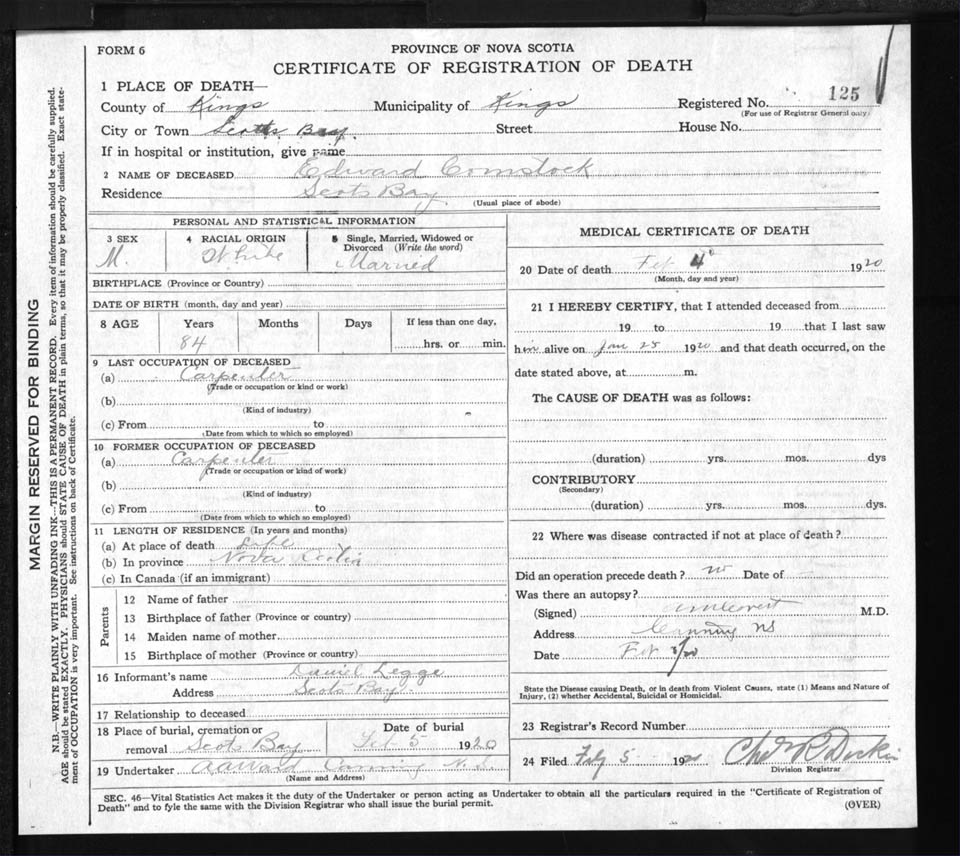 FORM 6
PROVINCE OF NOVA SCOTIA
CERTIFICATE OF REGISTRATION OF DEATH
1 PLACE OF DEATH—
County of Kings Municipality of Kings Registered No. 125
(For use of Registrar General only)
City or Town Scotts Bay. Street House No.
If in hospital or institution, give name
2 NAME OF DECEASED Edward Comstock
Residence Scots Bay
(Usual place of abode)
MARGIN RESERVED FOR BINDING
N.B.—WRITE PLAINLY WITH UNFADING INK—THIS IS A PERMANENT RECORD. Every item of information should be carefully supplied.
AGE should be stated EXACTLY. PHYSICIANS should STATE CAUSE OF DEATH in plain terms, so that it may be properly classified. Exact state-
ment of OCCUPATION is very important. See instructions on back of Certificate.
PERSONAL AND STATISTICAL INFORMATION
3 SEX 4 RACIAL ORIGIN 5 Single, Married, Widowed or
Divorced (Write the word)
M. White Married
BIRTHPLACE (Province or Country)
DATE OF BIRTH (month, day and year)
8 AGE Years Months Days If less than one day,
84 hrs. or min.
9 LAST OCCUPATION OF DECEASED
(a) Carpenter
(Trade or occupation or kind or work)
(b)
(Kind of industry)
(c) From to
(Date from which to which so employed)
10 FORMER OCCUPATION OF DECEASED
(a) Carpenter
(Trade or occupation or kind of work)
(b)
(Kind of industry)
(c) From to
(Date from which to which so employed)
11 LENGTH OF RESIDENCE (In years and months)
(a) At place of death Life
(b) In province Nova Scotia
(c) In Canada (if an immigrant)
Parents
12 Name of father
13 Birthplace of father (Province or country)
14 Maiden name of mother
15 Birthplace of mother (Province or country)
16 Informant's name Daniel Legge
Address Scots Bay.
17 Relationship to deceased
18 Place of burial, cremation or Date of burial
removal Scots Bay Feb 5 1920
19 Undertaker Canning N.S.
(Name and Address)
MEDICAL CERTIFICATE OF DEATH
20 Date of death 4 1920
(Month, day and year)
21 I HEREBY CERTIFY, that I attended deceased from
19 to 19 that I last saw
him alive on Jan 25 1920 and that death occurred, on the
date stated above, at m.
The CAUSE OF DEATH was as follows:
(duration) yrs. mos. dys
CONTRIBUTORY
(Secondary)
(duration) yrs. mos. dys.
22 Where was disease contracted if not at place of death?
Did an operation precede death? no Date of
Was there an autopsy?
(Signed) M.D.
Address Canning NS
Date
State the Disease causing Death, or in death from Violent Causes, state (1) Means and Nature of
Injury, (2) whether Accidental, Suicidal or Homicidal.
23 Registrar's Record Number
24 Filed Feby 5 1920
Division Registrar
SEC. 46—Vital Statistics Act makes it the duty of the Undertaker or person acting as Undertaker to obtain all the particulars required in the "Certificate of Registration of
Death" and to fyle the same with the Division Registrar who shall issue the burial permit.
(OVER)